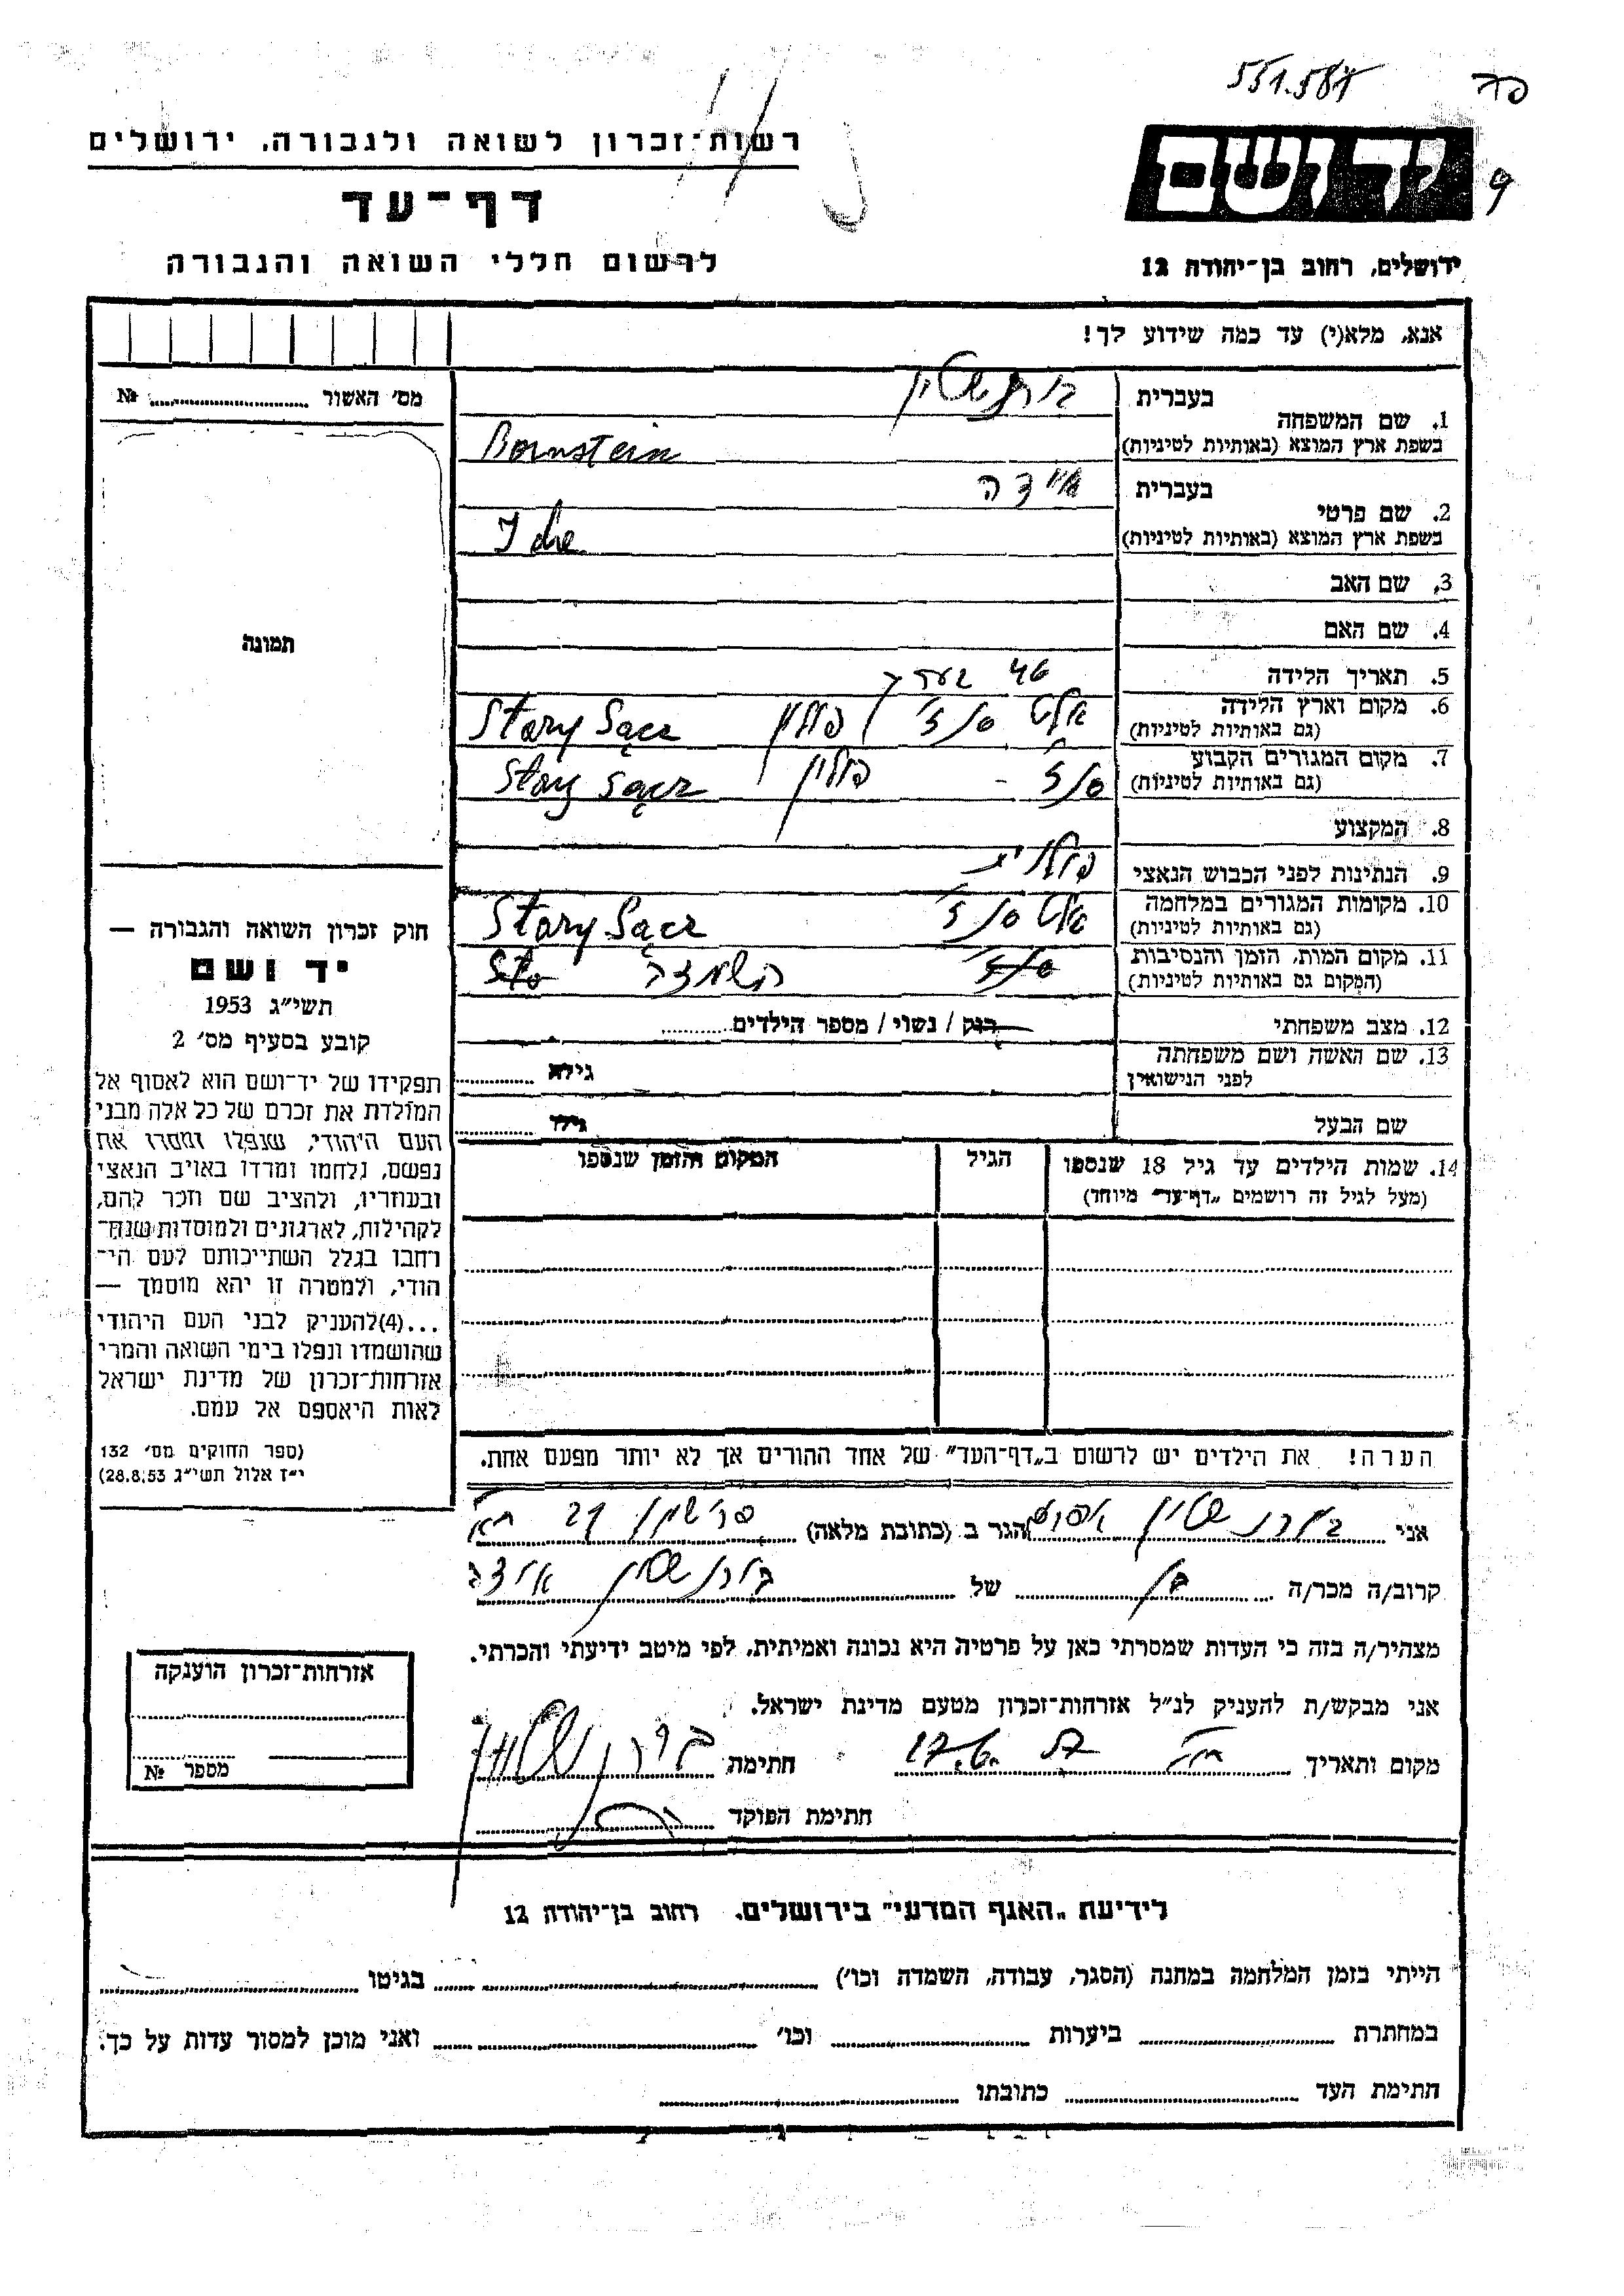 551.587
רשות־זכרון לשואה ולגבורה, ירושלים
דף־עד
לרשום חללי השואה והגבורה
יד ושם
ירושלים, רחוב בן־יהודה 12
אנא, מלא(י) עד כמה שידוע לך!
מס׳ האשור № ..........
תמונה
1. שם המשפחה
בעברית בורנשטיין
בשפת ארץ המוצא (באותיות לטיניות) Bornstein
2. שם פרטי
בעברית אידה
בשפת ארץ המוצא (באותיות לטיניות) Ide
3. שם האב
4. שם האם
5. תאריך הלידה 46 בערך
6. מקום וארץ הלידה (גם באותיות לטיניות) אלט סנז׳ / פולין Stary Sącz
7. מקום המגורים הקבוע (גם באותיות לטיניות) סנז׳ - פולין Stary Sącz
8. המקצוע
9. הנתינות לפני הכבוש הנאצי פולנית
10. מקומות המגורים במלחמה (גם באותיות לטיניות) אלט סנז׳ Stary Sącz
11. מקום המות, הזמן והנסיבות (המקום גם באותיות לטיניות) סנז׳ השמדה Sto
12. מצב משפחתי רוק / נשוי / מספר הילדים ..........
13. שם האשה ושם משפחתה לפני הנישואין גילה ..........
שם הבעל גילו ..........
14. שמות הילדים עד גיל 18 שנספו (מעל לגיל זה רושמים „דף־עד״ מיוחד)
הגיל
המקום והזמן שנספו
הערה! את הילדים יש לרשום ב„דף־העד״ של אחד ההורים אך לא יותר מפעם אחת.
חוק זכרון השואה והגבורה —
יד ושם
תשי״ג 1953
קובע בסעיף מס׳ 2
תפקידו של יד־ושם הוא לאסוף אל
המולדת את זכרם של כל אלה מבני
העם היהודי, שנפלו ומסרו את
נפשם, נלחמו ומרדו באויב הנאצי
ובעוזריו, ולהציב שם וזכר להם,
לקהילות, לארגונים ולמוסדות שנח־
רבו בגלל השתייכותם לעם הי־
הודי, ולמטרה זו יהא מוסמך —
...(4)להעניק לבני העם היהודי
שהושמדו ונפלו בימי השואה והמרי
אזרחות־זכרון של מדינת ישראל
לאות היאספם אל עמם.
(ספר החוקים מס׳ 132
י״ז אלול תשי״ג 28.8.53)
אני בורנשטיין הגר ב (כתובת מלאה) פרישמן
קרוב/ה מכר/ה בן של בורנשטיין אידה
מצהיר/ה בזה כי העדות שמסרתי כאן על פרטיה היא נכונה ואמיתית, לפי מיטב ידיעתי והכרתי.
אני מבקש/ת להעניק לנ״ל אזרחות־זכרון מטעם מדינת ישראל.
מקום ותאריך חתימה בורנשטיין
חתימת הפוקד
אזרחות־זכרון הוענקה
מספר №
לידיעת „האגף המדעי״ בירושלים, רחוב בן־יהודה 12
הייתי בזמן המלחמה במחנה (הסגר, עבודה, השמדה וכו׳) .......... בגיטו ..........
במחתרת .......... ביערות .......... וכו׳ .......... ואני מוכן למסור עדות על כך.
חתימת העד .......... כתובתו ..........